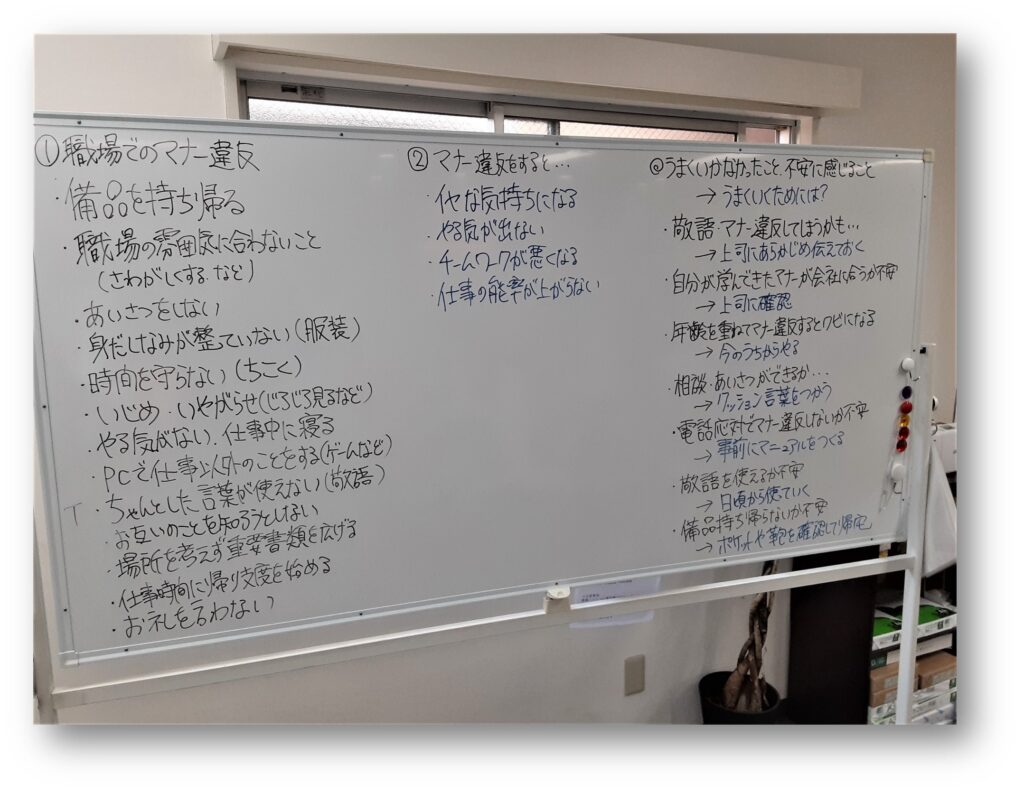 ①職場でのマナー違反
・備品を持ち帰る
・職場の雰囲気に合わないこと
(さわがしくする.など)
・あいさつをしない
・身だしなみが整っていない(服装)
・時間を守らない(ちこく)
・いじめ・いやがらせ(じろじろ見るなど)
・やる気がない.仕事中に寝る
・PCで仕事以外のことをする(ゲームなど)
・ちゃんとした言葉が使えない(敬語)
・お互いのことを知ろうとしない
・場所を考えず重要書類を広げる
・仕事時間に帰り支度を始める
・お礼を言わない
②マナー違反をすると…
・イヤな気持ちになる
・やる気が出ない
・チームワークが悪くなる
・仕事の能率が上がらない
@うまくいかなかったこと、不安に感じること
→うまくいくためには?
・敬語・マナー違反してしまうかも…
→上司にあらかじめ伝えておく
・自分が学んできたマナーが会社に合うか不安
→上司に確認
・年齢を重ねてマナー違反するとクビになる
→今のうちからやる
・相談・あいさつができるか…
→クッション言葉をつかう
・電話応対でマナー違反しないか不安
→事前にマニュアルをつくる
・敬語を使えるか不安
→日頃から使っていく
・備品持ち帰らないか不安
→ポケットや鞄を確認して帰宅